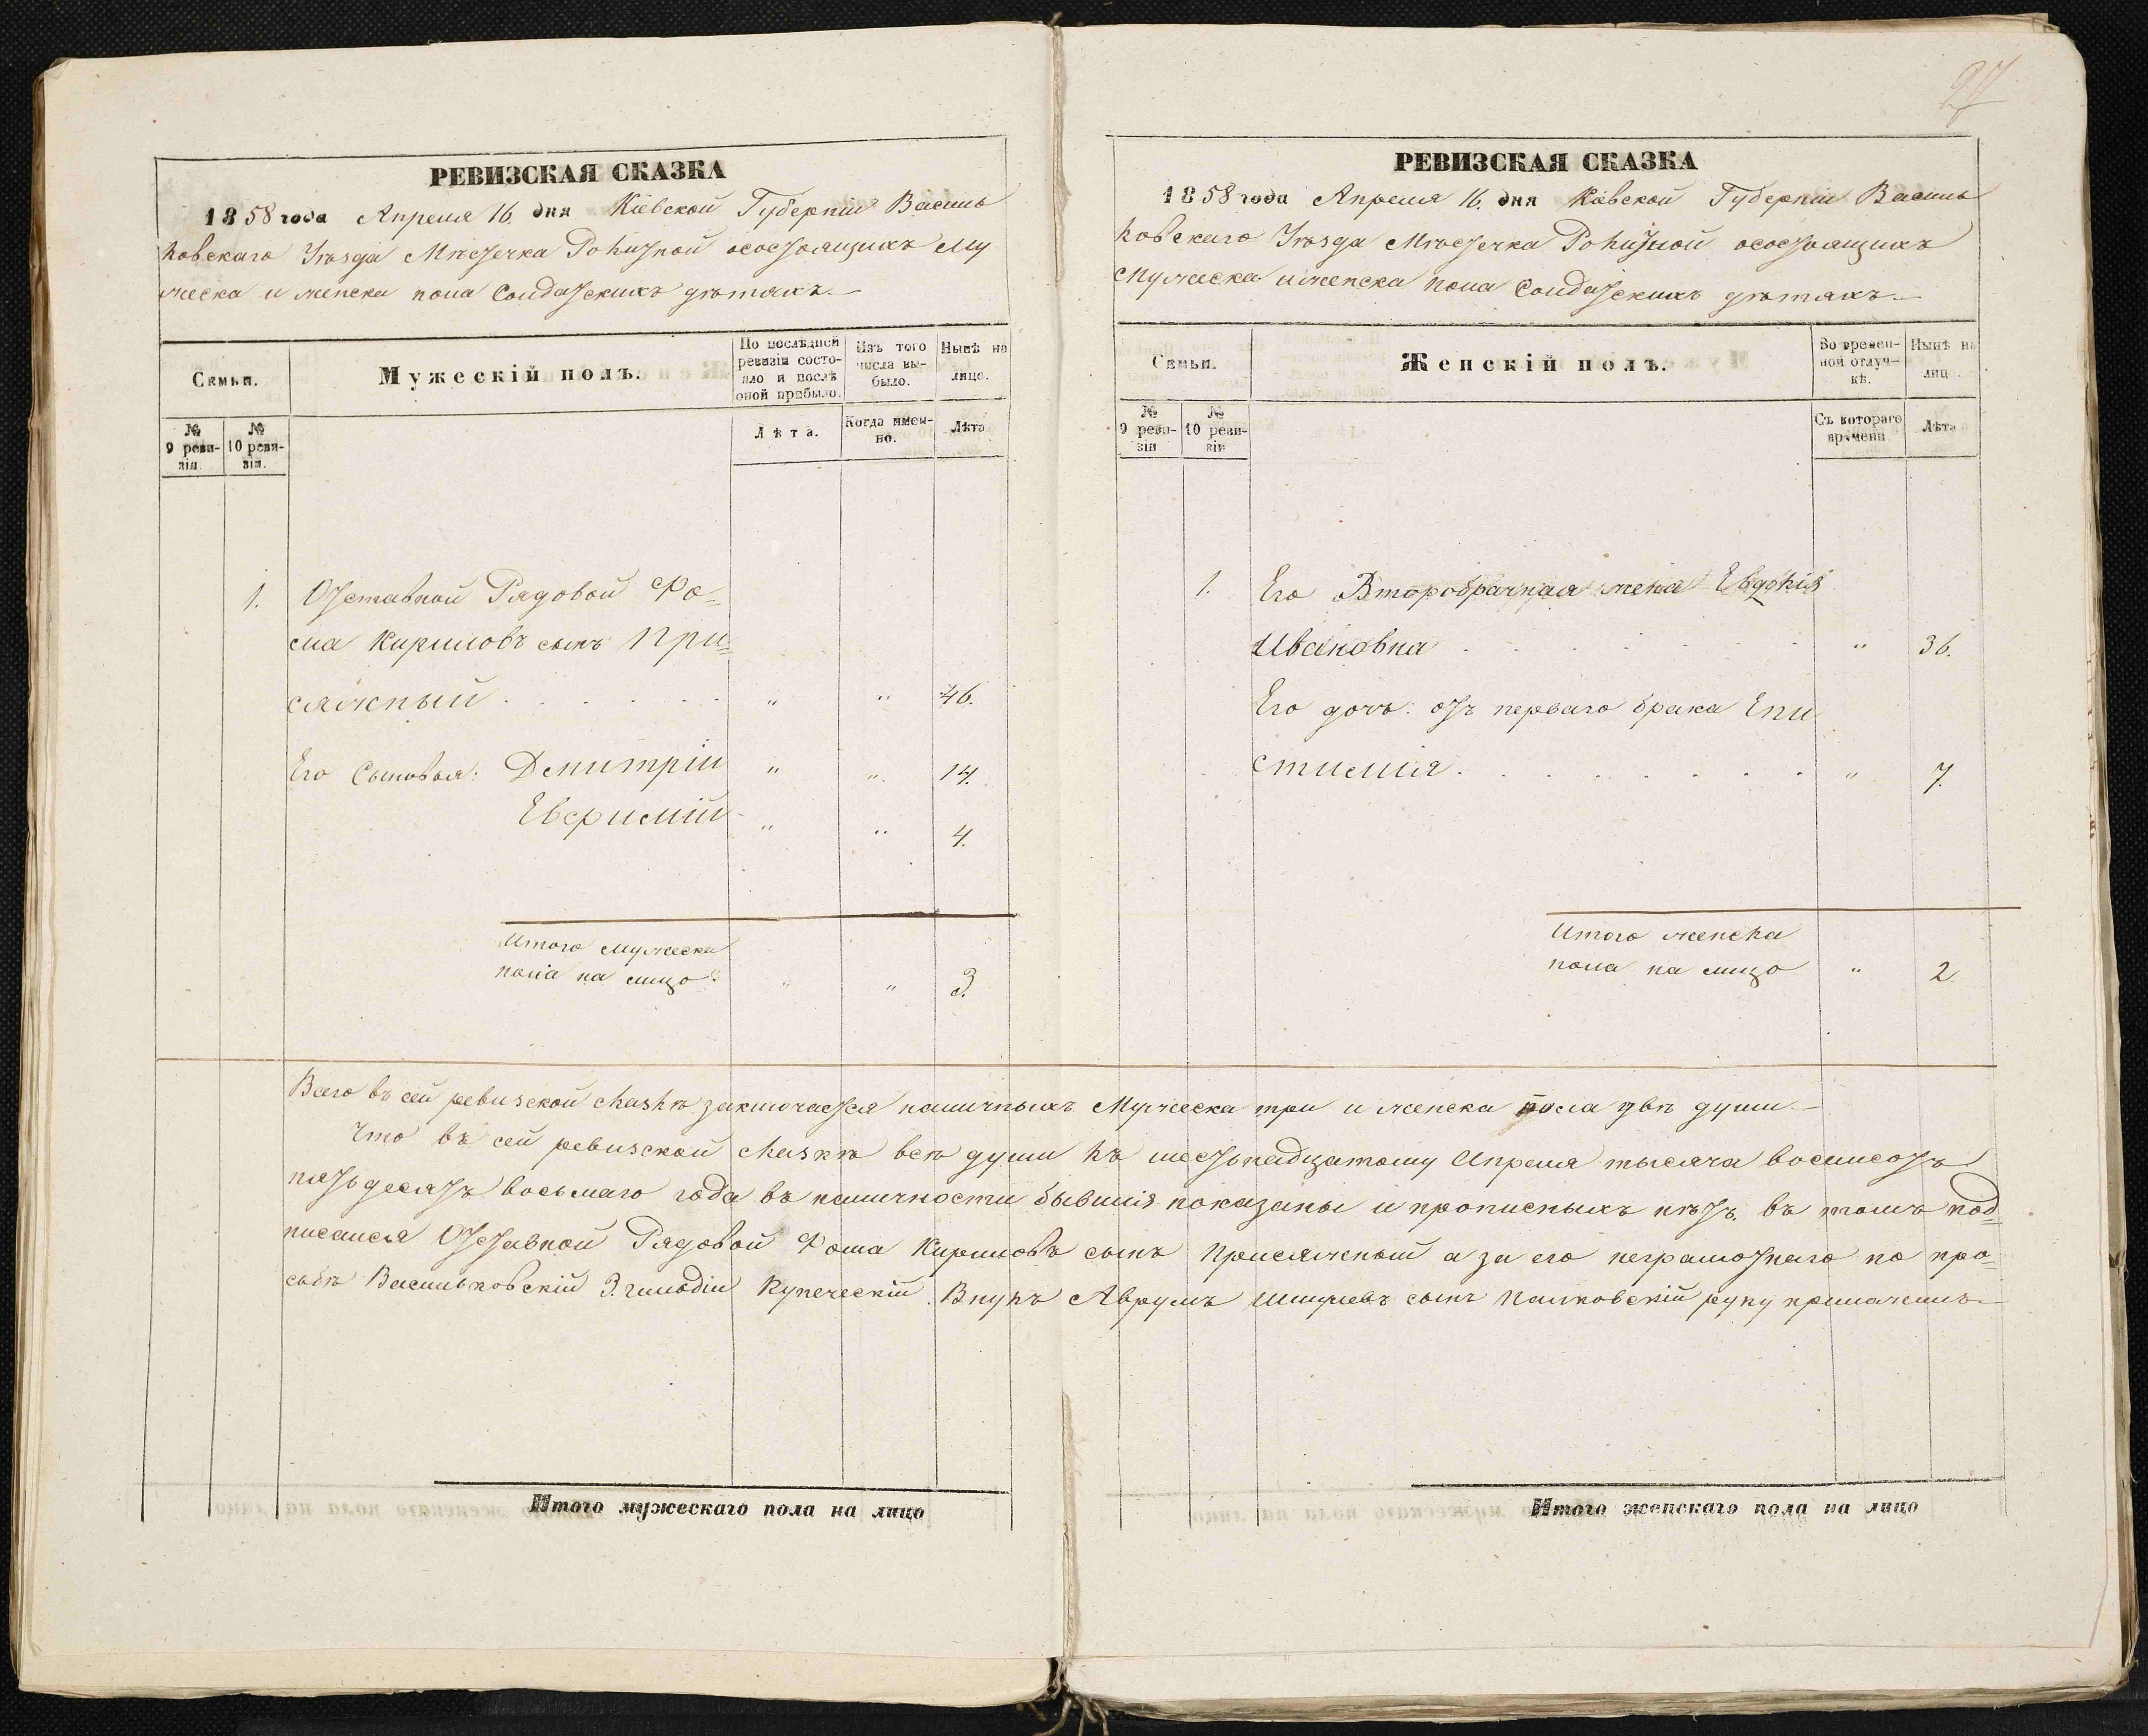 27
РЕВИЗСКАЯ СКАЗКА
1858 года Апреля 16. дня Кіевской Губерніи Василь
ковскаго Уѣзда Мѣстечка Рокитной осостоящихъ му
жеска и женска пола Солдатскихъ дѣтяхъ.—
Семьи.
Мужескій полъ.
По послѣдней ревизіи состояло и послѣ оной прибыло.
Изъ того числа выбыло.
Нынѣ на лице.
№ 9 ревизія.
№ 10 ревизія.
Лѣта.
Когда именно.
Лѣта
1. Отставной Рядовой Фо=
ма Кириловъ сынъ При=
сяжный . . . . . „ „ 46.
Его Сыновья: Дмитрій „ „ 14.
Евфимій „ „ 4.
Итого мужеска
пола на лицо: „ „ 3.
РЕВИЗСКАЯ СКАЗКА
1858 года Апреля 16. дня Кіевской Губерніи Василь
ковскаго Уѣзда Мѣстечка Рокитной осостоящихъ
мужеска и женска пола Солдатскихъ дѣтяхъ.—
Семьи.
Женскій полъ.
Во временной отлучкѣ.
Нынѣ на лиц
№ 9 ревизіи
№ 10 ревизіи
Съ котораго времени
Лѣта
1. Его Второбрачная жена Евдокія
Ивановна . . . . . . „ 36.
Его дочь: отъ перваго брака Епи
стимія . . . . . . . . „ 7.
Итого женска
пола на лицо „ 2.
Всего въ сей ревизской сказкѣ заключается наличныхъ мужеска три и женска пола двѣ души.—
Что въ сей ревизской сказкѣ всѣ души къ шестьнадцатому Апреля тысяча восемсотъ
пятьдесятъ восьмаго года въ наличности бывшія показаны и прописныхъ нѣтъ. въ томъ под=
писался Отставной Рядовой Фома Кириловъ сынъ Присяжный а за его неграмотнаго по про=
сьбѣ Васильковскій 3. гильдіи Купеческій Внукъ Аврумъ сынъ руку приложилъ.—
Итого мужескаго пола на лицо
Итого женскаго пола на лицо